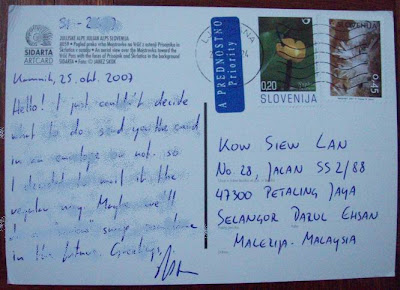 SI-2
JULIJSKE ALPE JULIAN ALPS SLOVENIJA
SIDARTA
ARTCARD
A PREDNOSTNO
Priority
0,20
SLOVENIJA
0,45
Kamnik, 25. okt. 2007
Hello! I just couldn't decide
what to do send you the card
in an envelope or not, so
I decided to mail it the
regular way. Maybe we'll
swap
in the future. Greetings,
KOW SIEW LAN
No. 28, JALAN SS 2/88
47300 PETALING JAYA
SELANGOR DARUL EHSAN
MALEZIJA - MALAYSIA